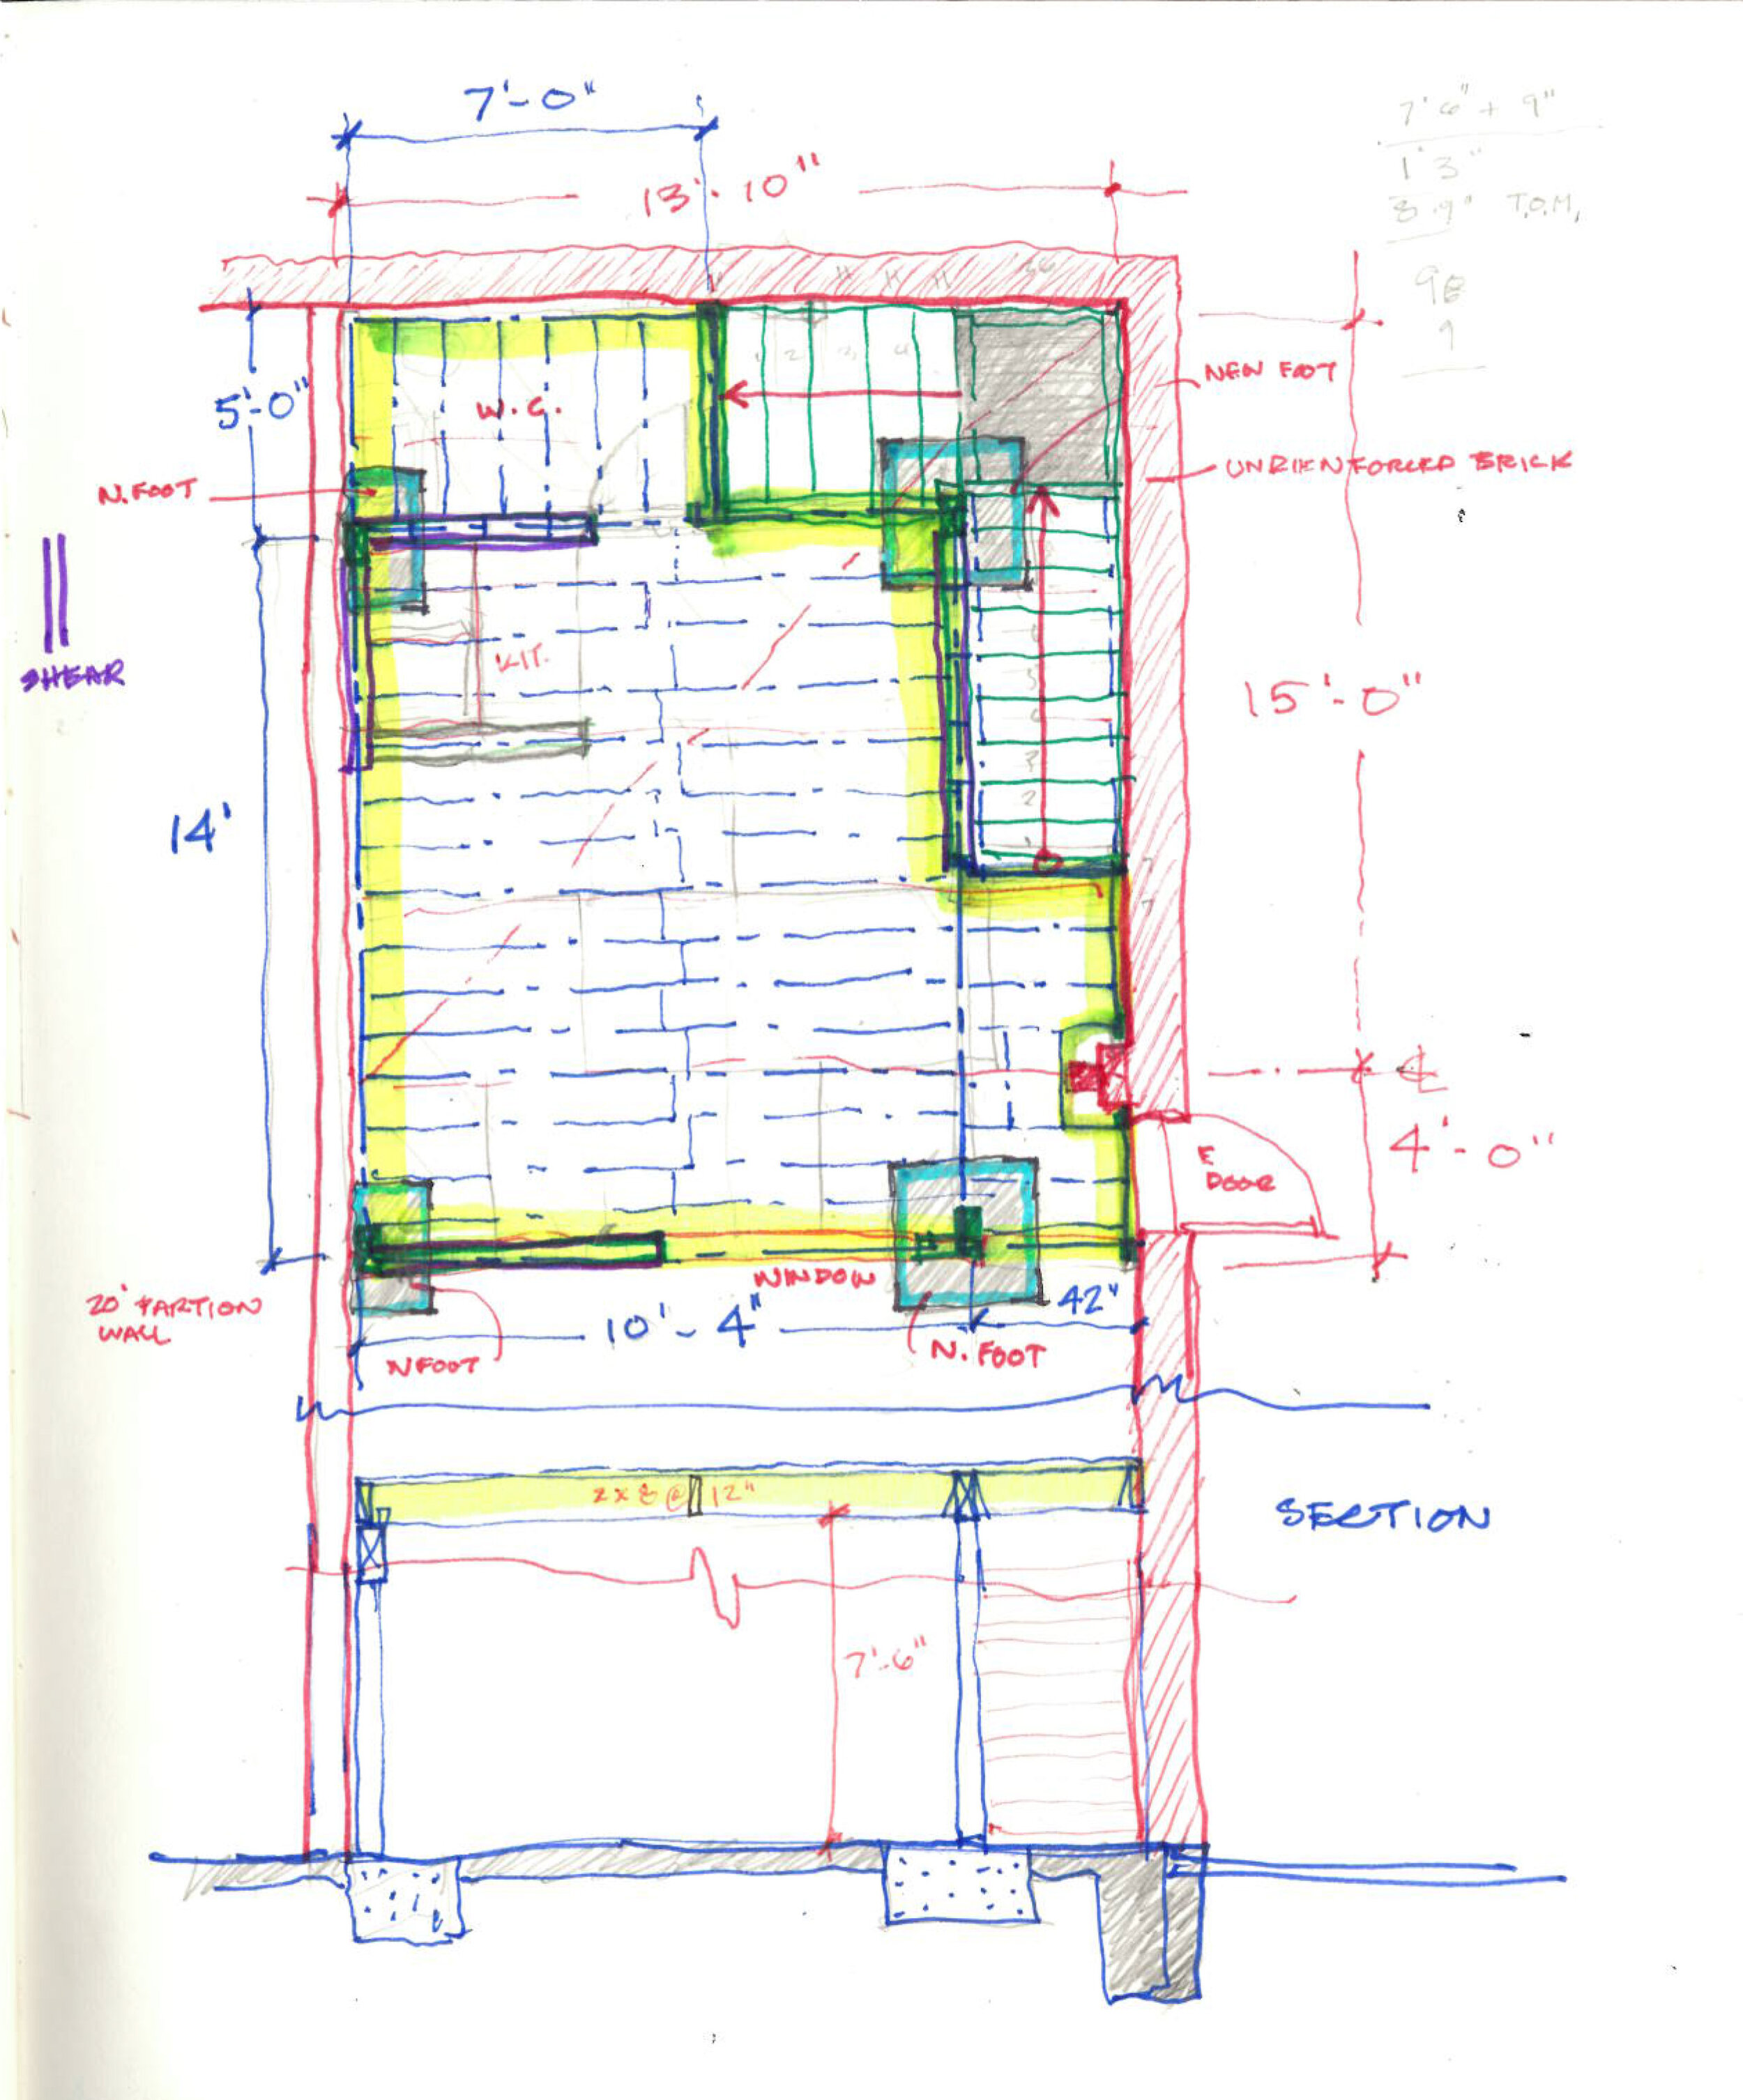 7'-0"
7'6" + 9"
1'3"
13'-10"
8.9" T.O.M.
9
NEW FOOT
5'-0"
W.C.
UNRIENFORCED BRICK
N. FOOT
1 2 3 4
SHEAR
KIT.
15'-0"
14'
2
1
4'-0"
E
DOOR
WINDOW
20' PARTION
WALL
10'-4"
42"
N FOOT
N. FOOT
2x8 @ 12"
SECTION
7'-6"